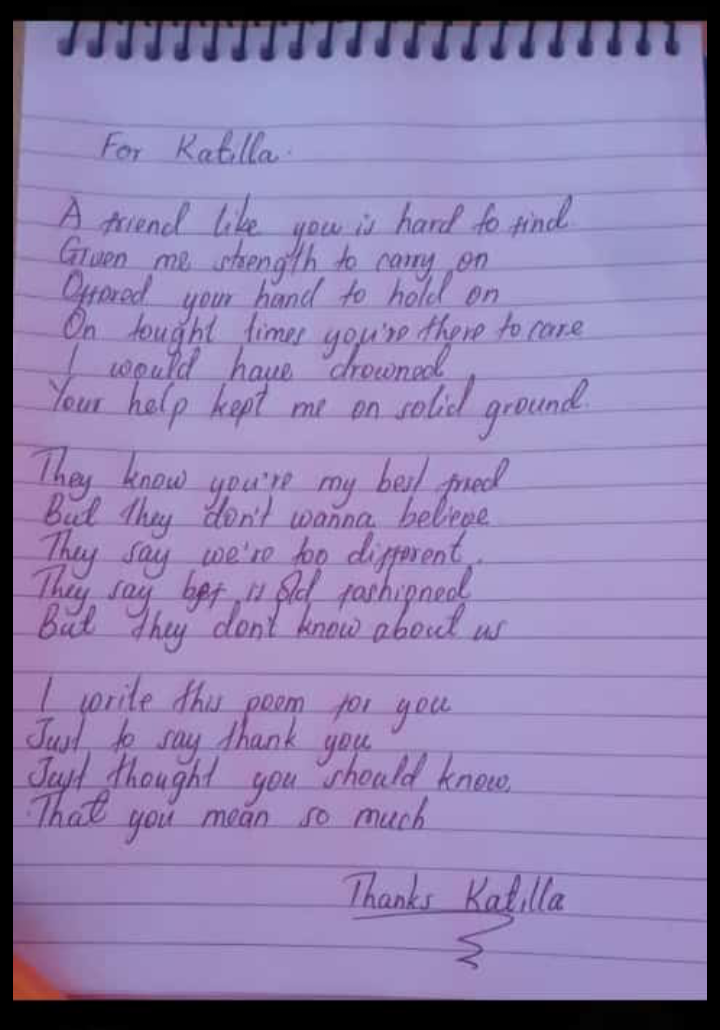 For Katilla.
A friend like you is hard to find
Given me strength to carry on
Offered your hand to hold on
On tought times you're there to care
I would have drowned
Your help kept me on solid ground.
They know you're my best fried
But they don't wanna believe
They say we're too different.
They say is old fashioned
But they don't know about us
I write this poem for you
Just to say thank you
Just thought you should know
That you mean so much
Thanks Katilla